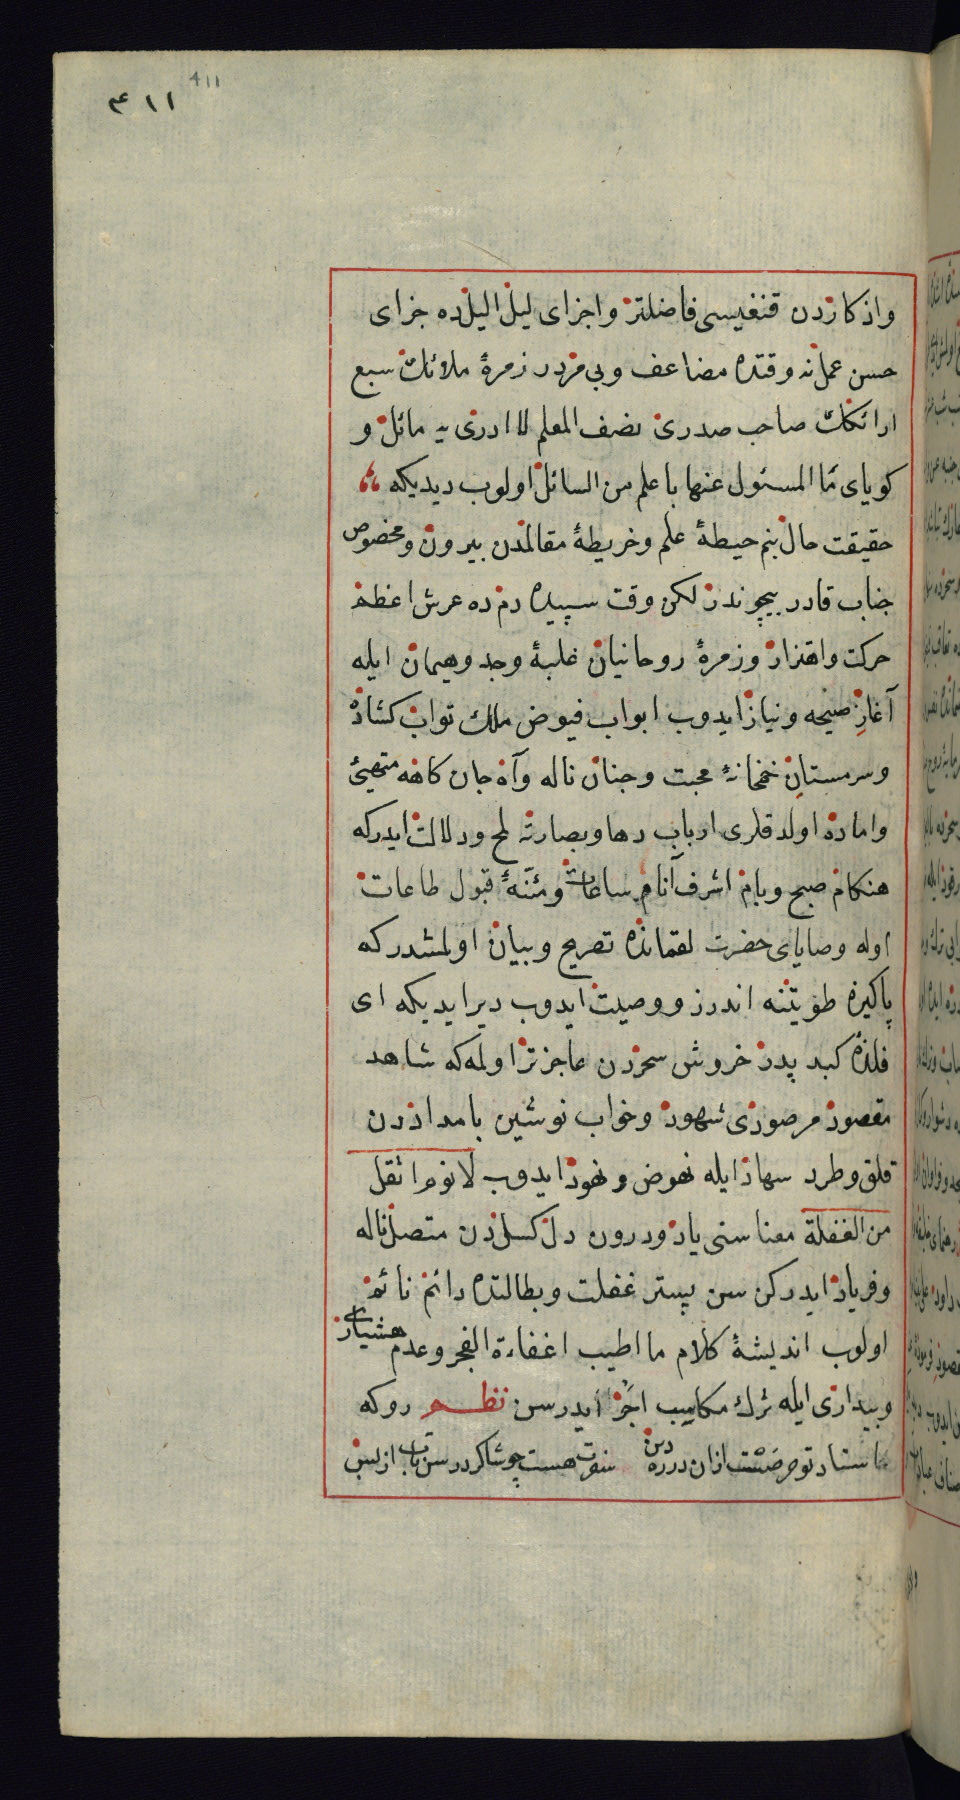 411
۴۱۱
واذكاردن قنغيسى فاضلتر واجزاى ليل اليلده جزاى
حسن عمل نه وقتده مضاعف وبى مردر زمرهٔ ملائك سبع
ارائكك صاحب صدرى نصف العلم لا ادرى يه مائل و
كوياى ما المسئول عنها باعلم من السائل اولوب ديديكه
حقيقت حال بنم حيطهٔ علم وخريطهٔ مقالمدن بيرون ومخصوص
جناب قادر بيچوندر لكن وقت سپيده دم ده عرش اعظم
حركت واهتزاز وزمرهٔ روحانيان غلبهٔ وجد وهيمان ايله
آغازِ صيحه ونياز ايدوب ابواب فيوض ملك تواب كشاده
وسرمستانِ خمخانهٔ محبت وجنان ناله وآه جان كاهه متهيئ
واماده اولدقلرى ارباب دها وبصارته لمح ودلالت ايدركه
هنكام صبح وبام اشرف آنام ساعات ومئنّهٔ قبول طاعات
اوله وصاياى حضرت لقمانده تصريح وبيان اولمشدركه
پاكيزه طويتنه اندرز ووصيت ايدوب ديرايديكه اى
فلذهٔ كبد پدر خروش سحردن عاجزتر اولمه كه شاهد
مقصود مرصودى شهود وخواب نوشين بامداددن
قلق وطرد سهاد ايله نهوض ونهود ايدوب لا نوم اثقل
من الغفلة معناسنى ياد ودرون دل كسلدن متصل ناله
وفرياد ايدركن سن بستر غفلت وبطالتده دائم نائم
اولوب انديشهٔ كلام ما اطيب اغفاءة الفجر وعدم هشيارى
وبيدارى ايله ترك مكاسب اجر ايدرسن نظم روكه
استاد تو حرصست ازان در ره دين سفرت هست چو شاكرد رسن تاب از پس